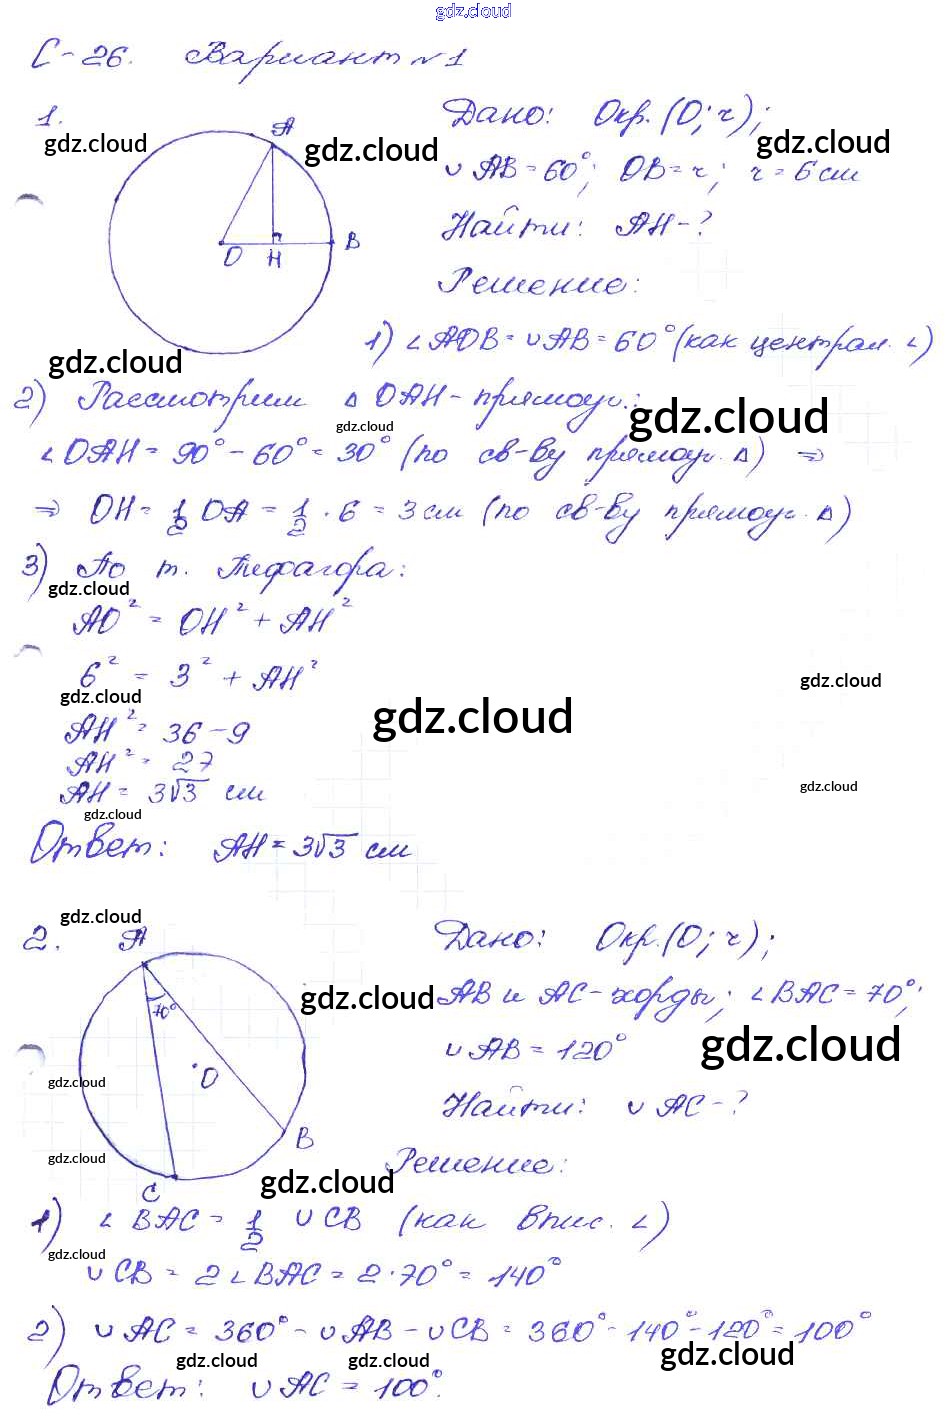 gdz.cloud
С-26. Вариант №1
1.
gdz.cloud
A
O
H
B
gdz.cloud
Дано: Окр.(O; r);
gdz.cloud
∪ AB = 60°; OB = r; r = 6 см
Найти: AH - ?
Решение:
1) ∠ AOB = ∪ AB = 60° (как централ. ∠)
gdz.cloud
2) Рассмотрим △ OAH - прямоуг.:
gdz.cloud
gdz.cloud
∠ OAH = 90° - 60° = 30° (по св-ву прямоуг. △) ⇒
⇒ OH = 1/2 OA = 1/2 · 6 = 3 см (по св-ву прямоуг. △)
3) По т. Пифагора:
gdz.cloud
AO² = OH² + AH²
6² = 3² + AH²
gdz.cloud
gdz.cloud
gdz.cloud
AH² = 36 - 9
AH² = 27
AH = 3√3 см
gdz.cloud
gdz.cloud
Ответ: AH = 3√3 см
gdz.cloud
2.
A
70°
O
B
C
Дано: Окр.(O; r);
gdz.cloud
AB и AC - хорды; ∠ BAC = 70°;
∪ AB = 120°
gdz.cloud
gdz.cloud
Найти: ∪ AC - ?
gdz.cloud
Решение:
gdz.cloud
1) ∠ BAC = 1/2 ∪ CB (как впис. ∠)
gdz.cloud
∪ CB = 2 ∠ BAC = 2 · 70° = 140°
2) ∪ AC = 360° - ∪ AB - ∪ CB = 360° - 140° - 120° = 100°
gdz.cloud
gdz.cloud
gdz.cloud
Ответ: ∪ AC = 100°.